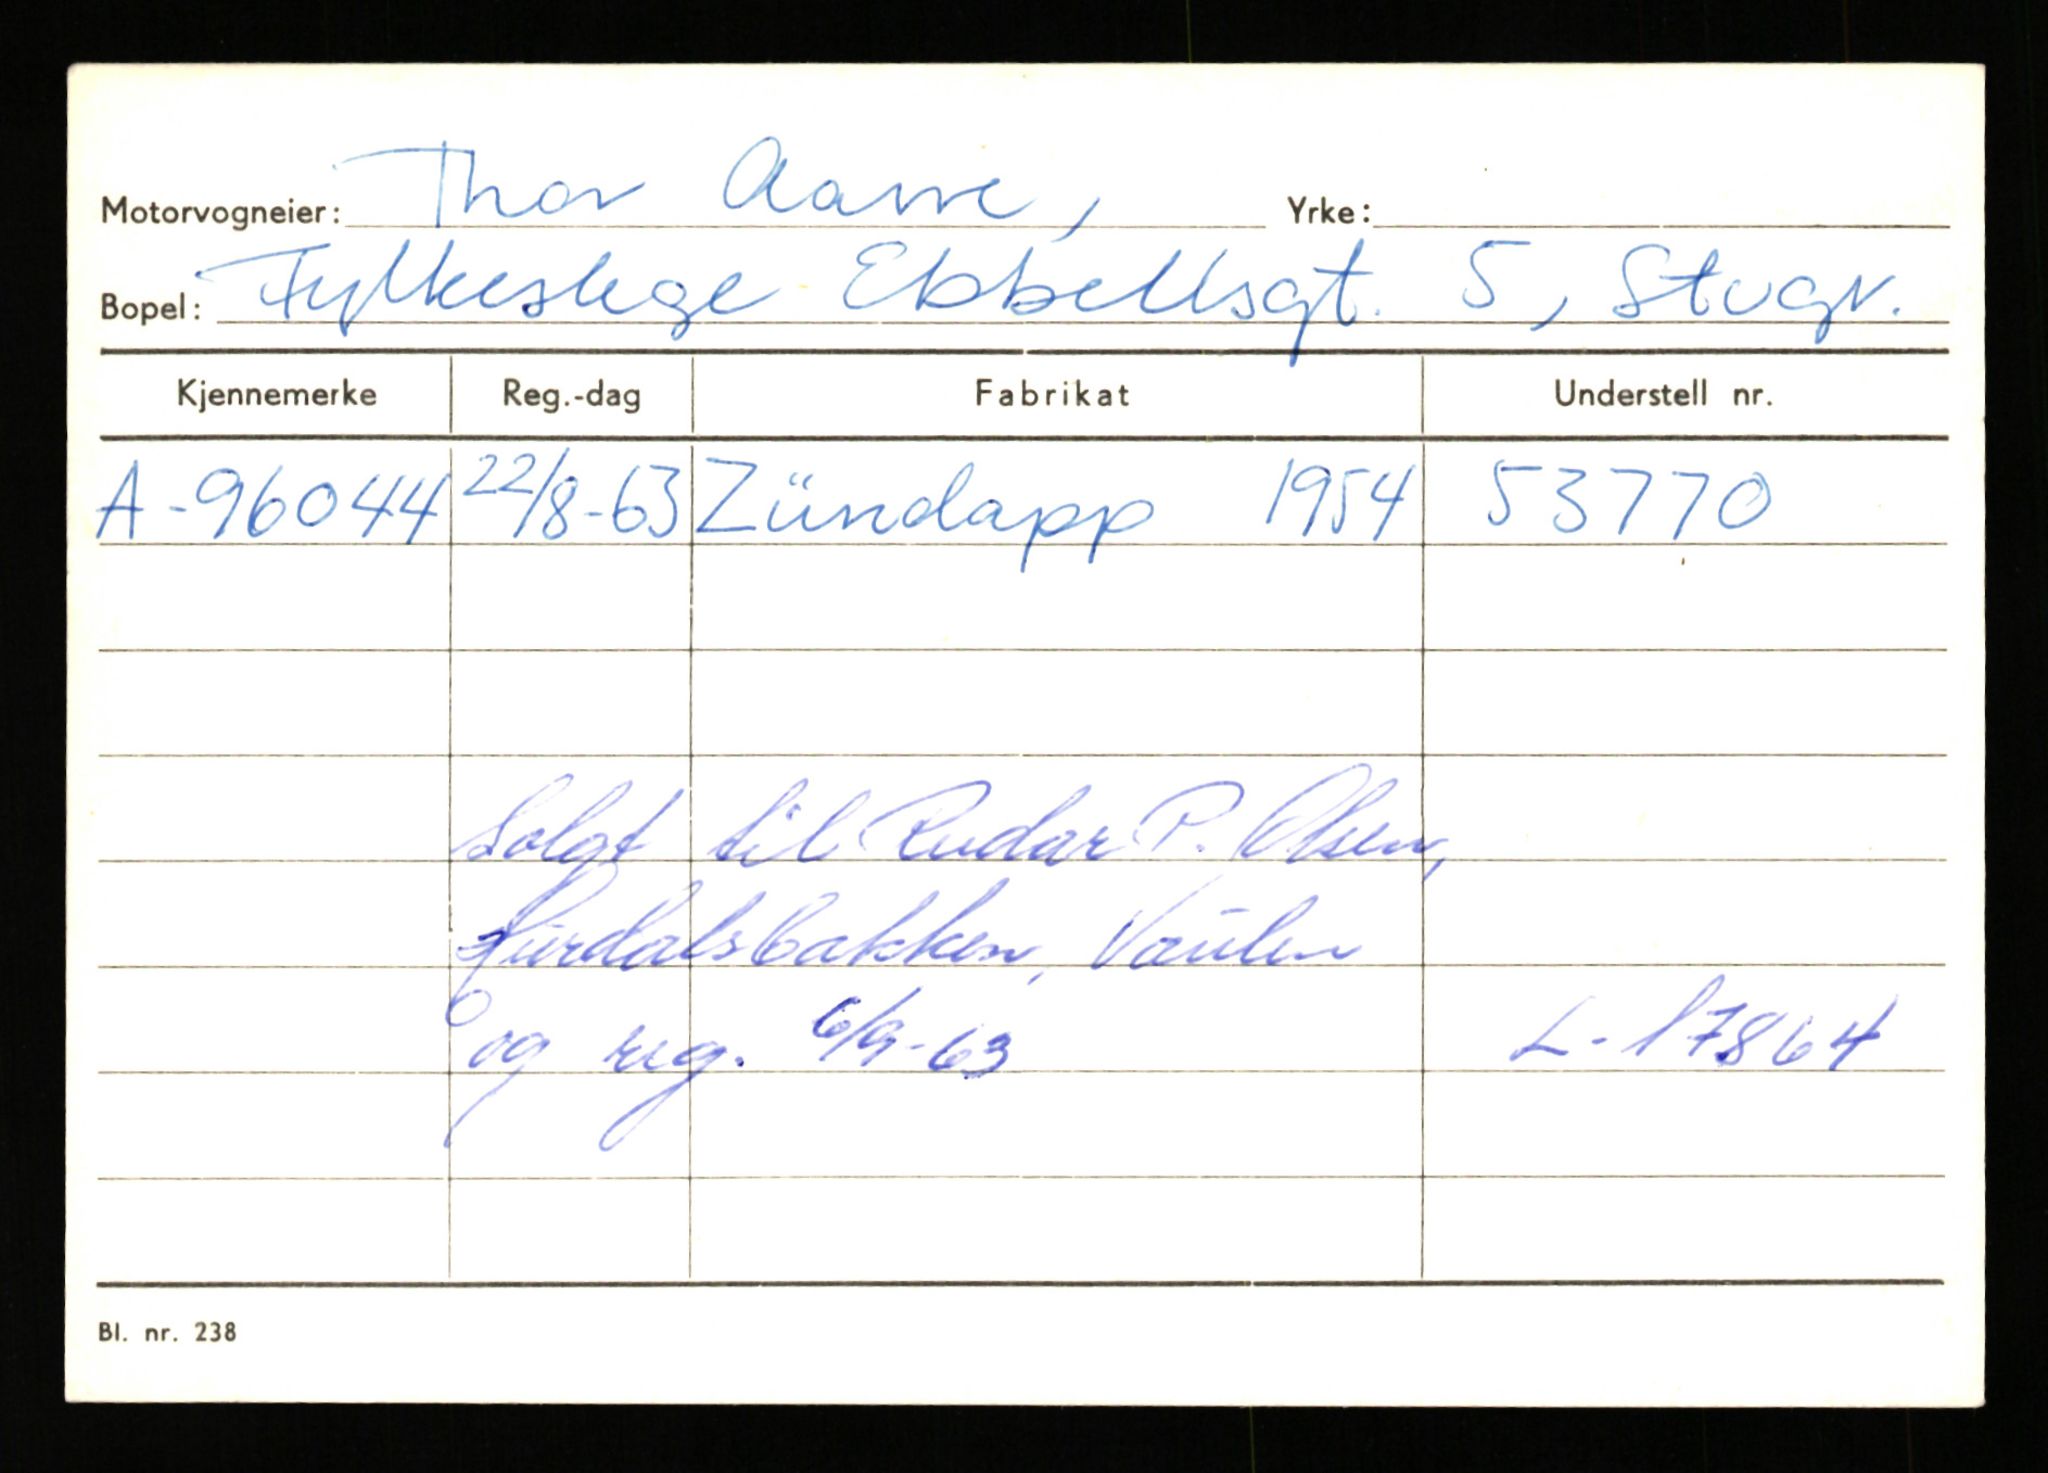 Motorvogneier: Thor Aarre, Yrke:
Bopel: Fylkeslege Ebbellsgt. 5, Stvgr.
Kjennemerke Reg.-dag Fabrikat Understell nr.
A-96044 22/8-63 Zündapp 1954 53770
Solgt til Rudar P. Olsen,
Hurdalsbakken, Vaulen
og reg. 6/9-63 L-17864
Bl. nr. 238